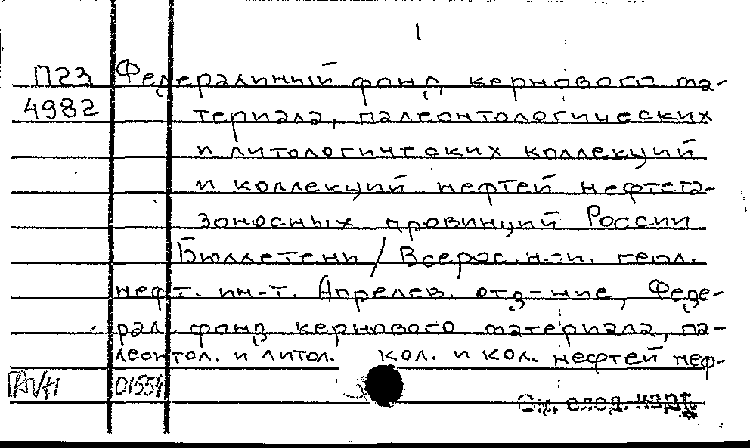 1
П23 Федеральный фонд кернового ма-
4982 териала, палеонтологических
и литологических коллекций
и коллекций нефтей нефтега-
зоносных провинций России
Бюллетень / Всерос. н.-и. геол.
нефт. ин-т. Апрелев. отд-ние, Феде-
рал. фонд кернового материала, па-
леонтол. и литол. кол. и кол. нефтей неф-
01554
См. след. карт.